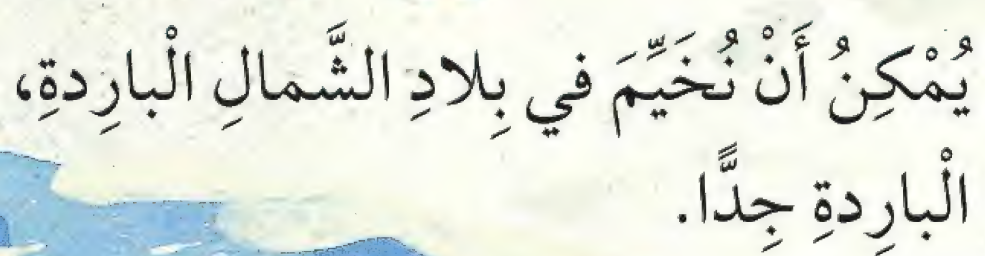 يُمْكِنُ أَنْ نُخَيِّمَ في بِلادِ الشَّمالِ الْبارِدةِ،
الْبارِدةِ جِدًّا.